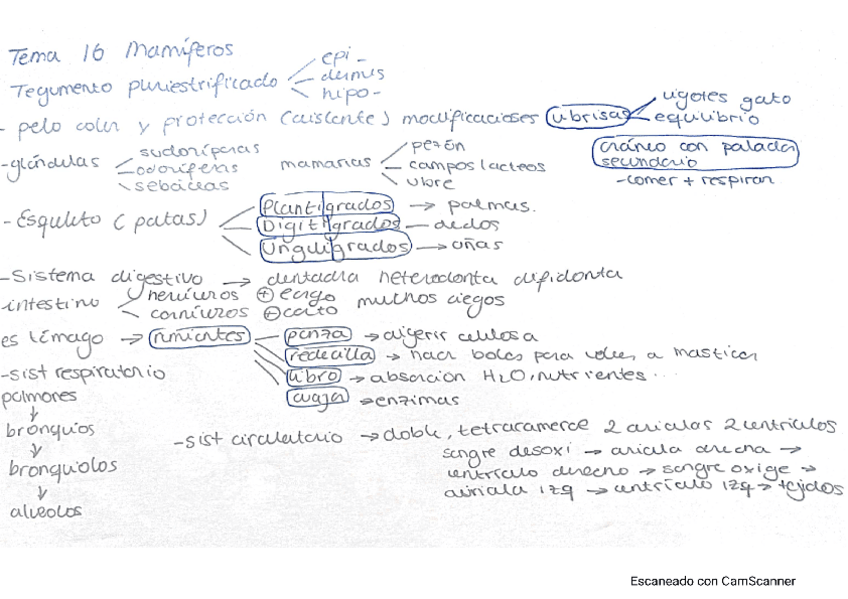 Tema 16 Mamíferos
Tegumento pluriestrificado epi - dermis hipo -
- pelo color y protección (aislante) modificaciones vibrisas vigotes gato equilibrio
- glándulas sudoríparas odoríferas sebáceas mamarias pezón campos lacteos ubre
cráneo con paladar secundario
- comer + respirar
- Esquleto (patas) Plantigrados → palmas.
Digitigrados - dedos
Unguligrados → uñas
- Sistema digestivo → dentadra heterodonta difidonta
intestino hervívoros + largo muchos ciegos
carnívoros + corto
estómago → rumiantes panza → digerir celulosa
redecilla → hacer bolos para volver a masticar
libro → absorción H2O, nutrientes...
cuajar → enzimas
- sist respiratorio
pulmones
↓
bronquios
↓
bronquiolos
↓
alveolos
- sist circulatorio → doble, tetracameral 2 auriculas 2 ventrículos
sangre desoxi → auricula derecha →
ventrículo derecho → sangre oxige →
auricula izq → ventrículo izq → tejidos
Escaneado con CamScanner